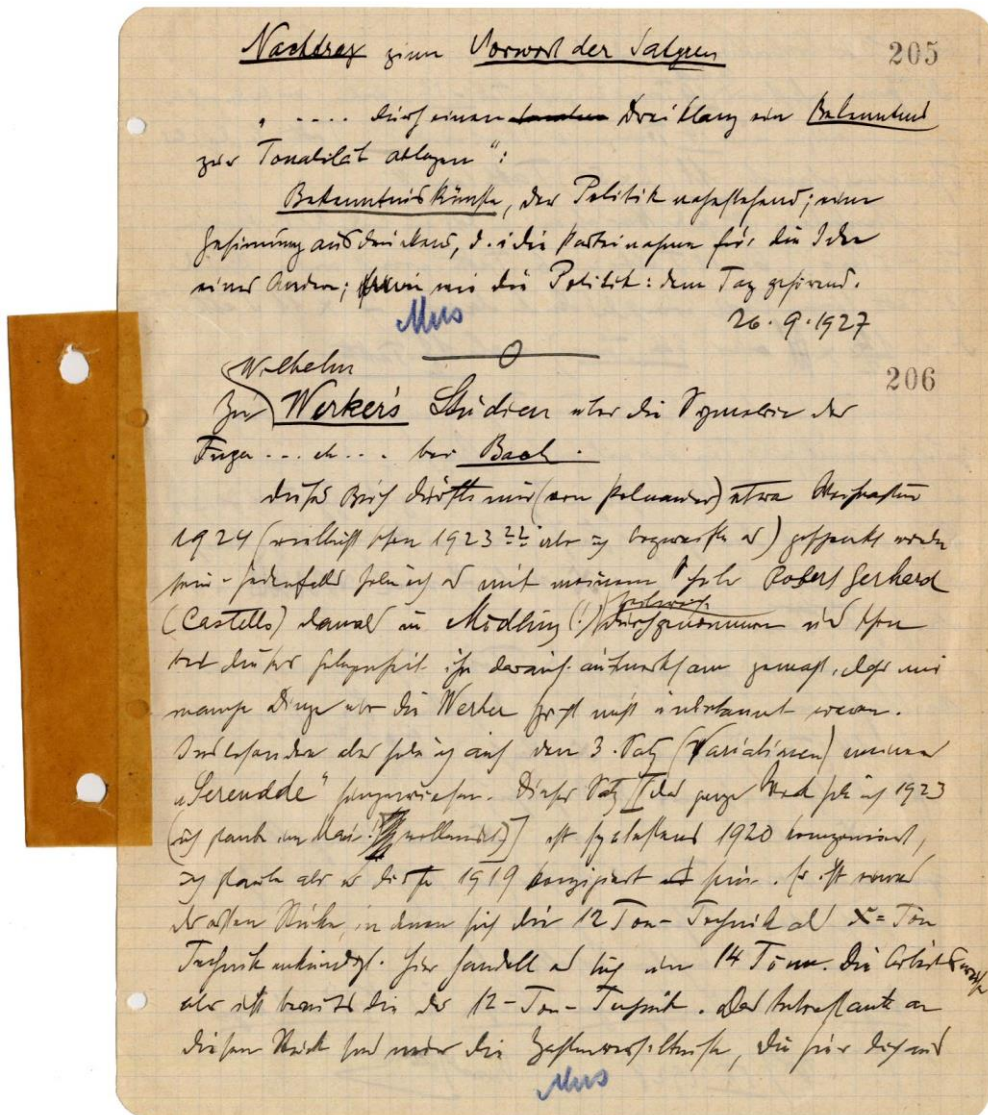 Nachtrag zum Vorwort der Satyren
205
" .... durch einen Dreiklang ein Bekenntnis
zur Tonalität ablegen":
Bekenntniskünste, der Politik nahestehend; eine
Gesinnung ausdrückend, d.i. die Parteinahme für die Idee
eines Andern; wie die Politik: dem Tag gehörend.
Mus
26.9.1927
206
Wilhelm
Zu Werker's Studien über die Symmetrie der
Fugen ... etc ... bei Bach.
Dieses Buch dürfte mir (von Polnauer) etwa Weihnachten
1924 (vielleicht schon 1923 ?? aber ich bezweifle es) geschenkt worden
sein - jedenfalls habe ich es mit meinem Schüler Robert Gerhard
(Castells) damals in Mödling (!) teilweise durchgenommen und schon
bei dieser Gelegenheit ihn darauf aufmerksam gemacht, dass mir
manche Dinge, die Werker nicht unbekannt waren.
Insbesondere aber habe ich auf den 3. Satz (Variationen) meiner
"Serenade" hingewiesen. Dieser Satz [das ganze Werk habe ich 1923
(ich glaube im Mai!) vollendet] ist spätestens 1920 komponiert,
ich glaube aber er dürfte 1919 konzipiert sein. Er ist eines
der ersten Stücke, in denen sich die 12 Ton-Technik als X=Ton
Technik ankündigt. Hier handelt es sich um 14 Töne. Die Arbeitsweise
aber ist bereits die der 12-Ton-Technik. Das Interessante an
diesem Stück sind nun die Zahlenverhältnisse, die hier durchaus
Mus